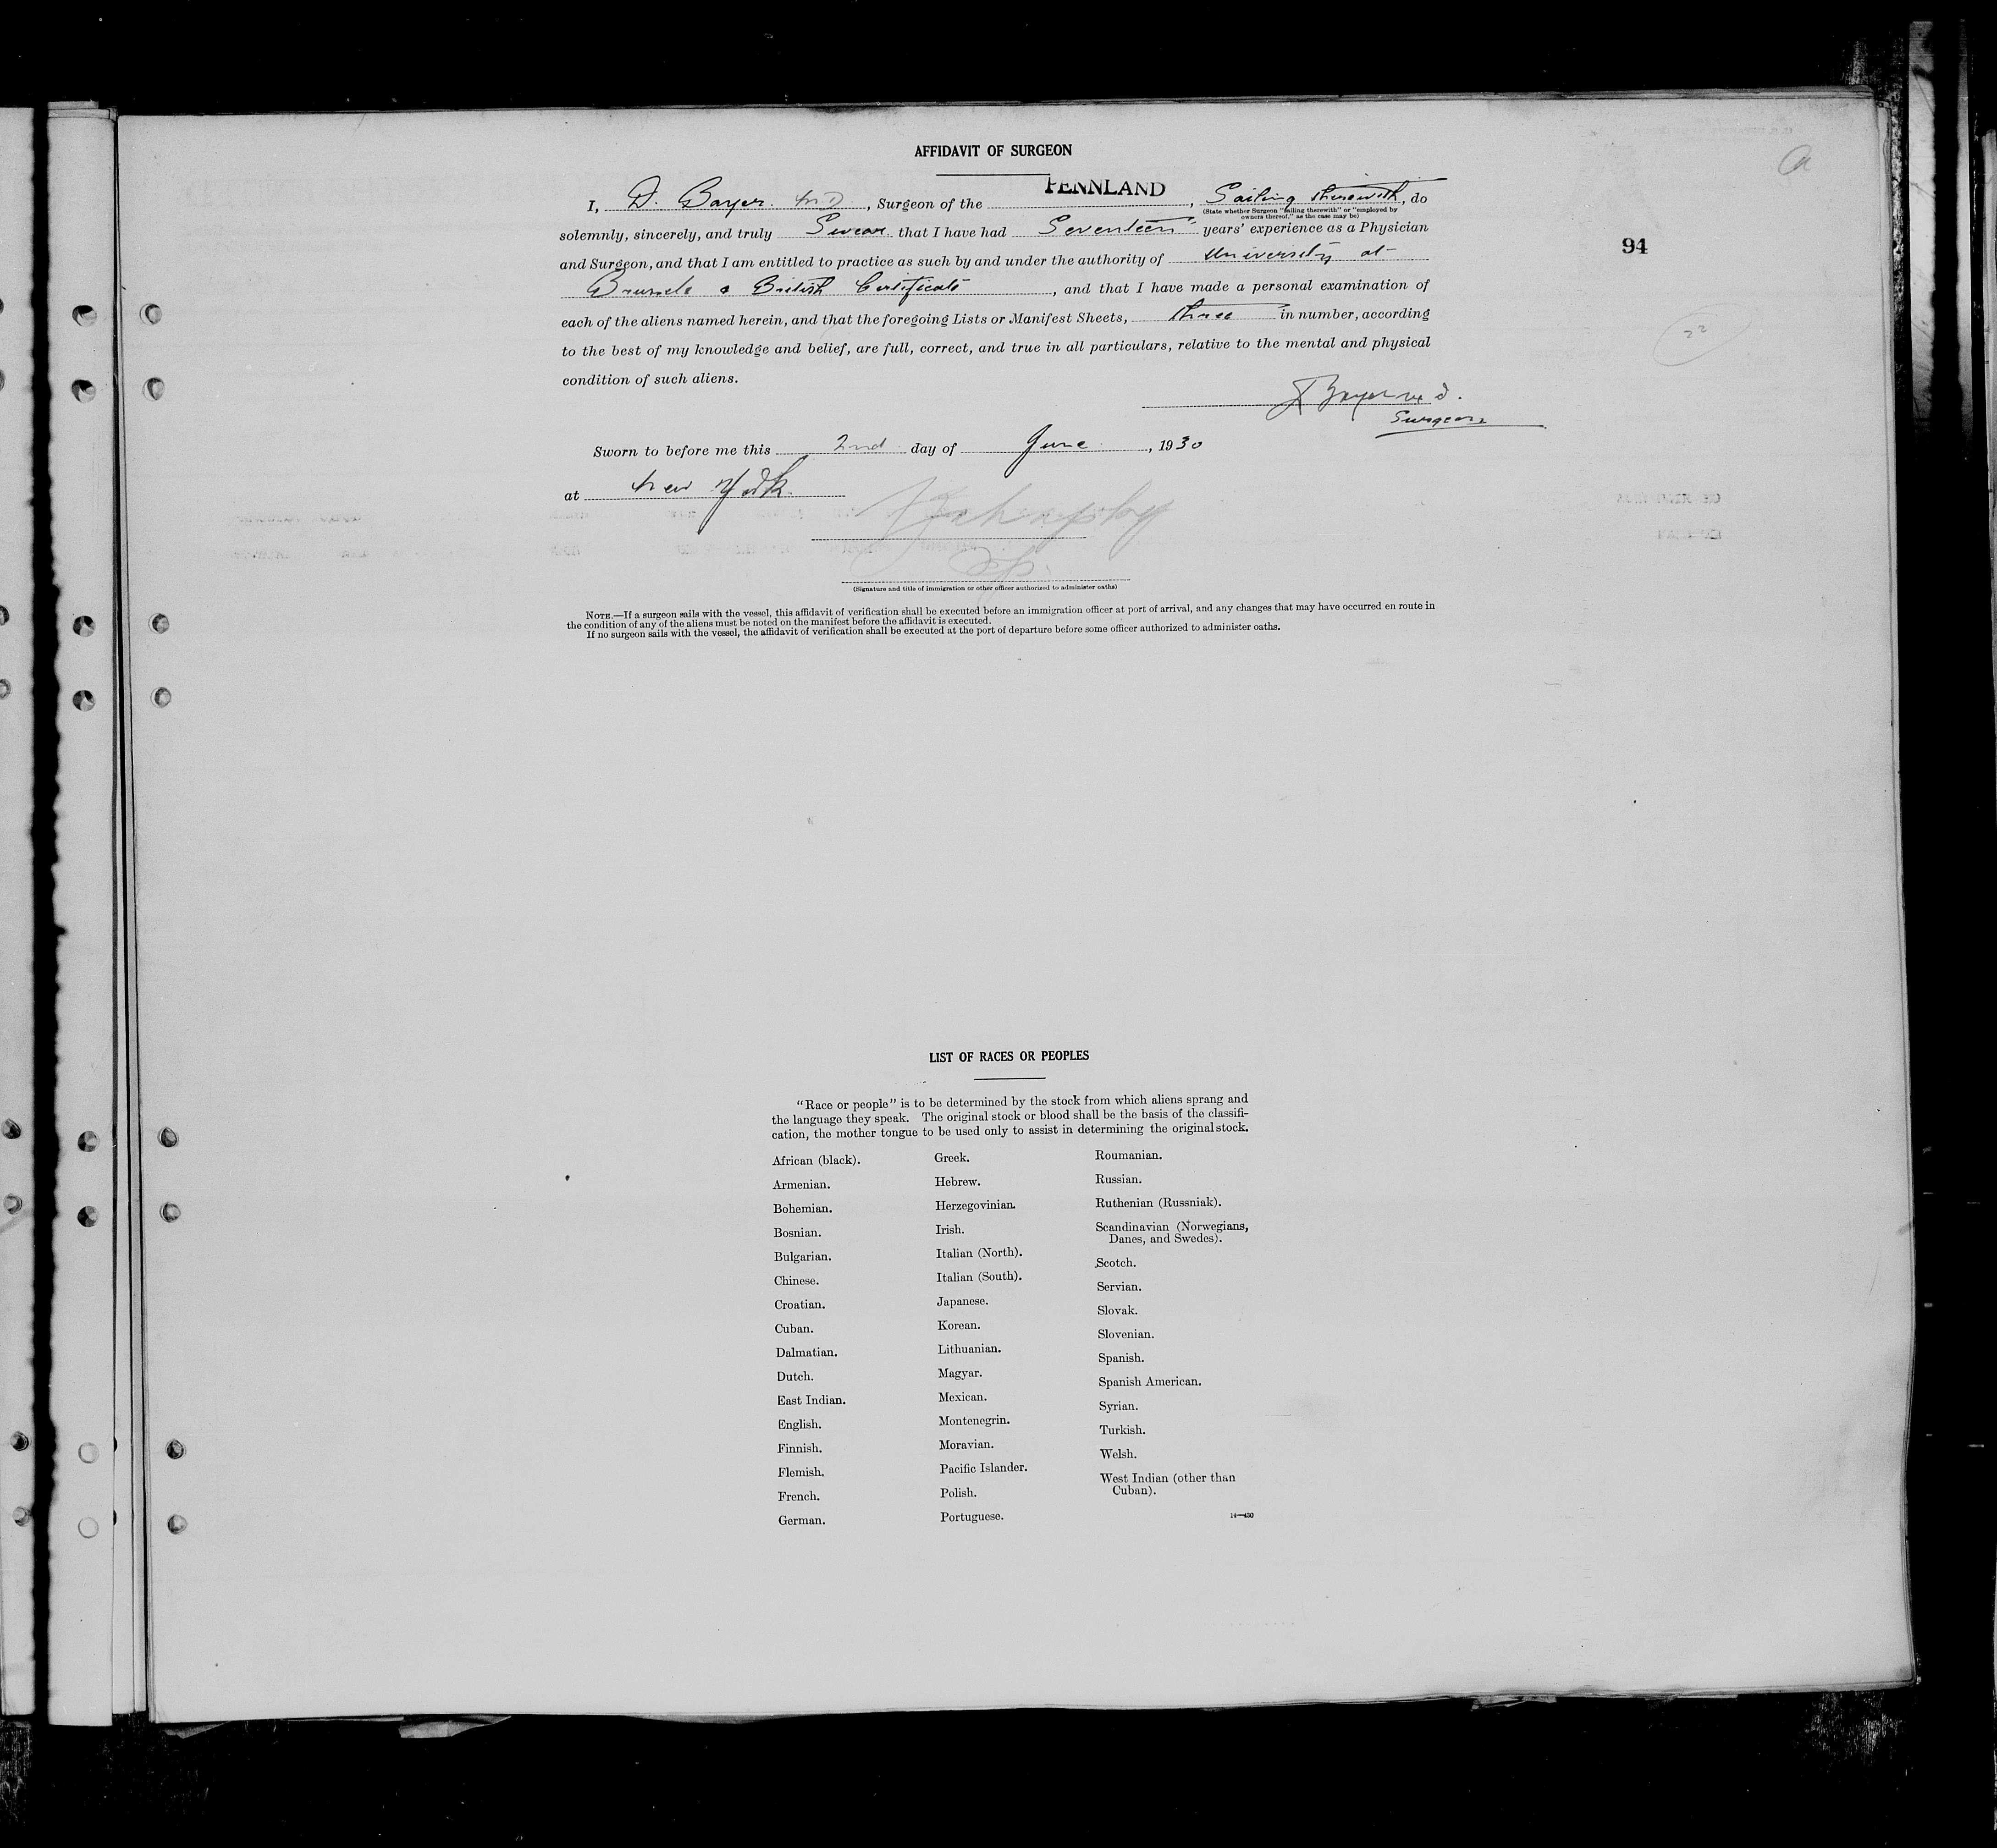 AFFIDAVIT OF SURGEON
I, D. Bayer. M.D, Surgeon of the PENNLAND, Sailing therewith, do
(State whether Surgeon "sailing therewith" or "employed by
owners thereof," as the case may be)
solemnly, sincerely, and truly Swear that I have had Seventeen years' experience as a Physician
and Surgeon, and that I am entitled to practice as such by and under the authority of University at
Brussels & British Certificate, and that I have made a personal examination of
each of the aliens named herein, and that the foregoing Lists or Manifest Sheets, three in number, according
to the best of my knowledge and belief, are full, correct, and true in all particulars, relative to the mental and physical
condition of such aliens.
Bayer M D.
Surgeon
Sworn to before me this 2nd day of June, 1930
at New York.
(Signature and title of immigration or other officer authorized to administer oaths)
NOTE.—If a surgeon sails with the vessel, this affidavit of verification shall be executed before an immigration officer at port of arrival, and any changes that may have occurred en route in
the condition of any of the aliens must be noted on the manifest before the affidavit is executed.
If no surgeon sails with the vessel, the affidavit of verification shall be executed at the port of departure before some officer authorized to administer oaths.
94
22
LIST OF RACES OR PEOPLES
"Race or people" is to be determined by the stock from which aliens sprang and
the language they speak. The original stock or blood shall be the basis of the classifi-
cation, the mother tongue to be used only to assist in determining the original stock.
African (black).
Armenian.
Bohemian.
Bosnian.
Bulgarian.
Chinese.
Croatian.
Cuban.
Dalmatian.
Dutch.
East Indian.
English.
Finnish.
Flemish.
French.
German.
Greek.
Hebrew.
Herzegovinian.
Irish.
Italian (North).
Italian (South).
Japanese.
Korean.
Lithuanian.
Magyar.
Mexican.
Montenegrin.
Moravian.
Pacific Islander.
Polish.
Portuguese.
Roumanian.
Russian.
Ruthenian (Russniak).
Scandinavian (Norwegians,
Danes, and Swedes).
Scotch.
Servian.
Slovak.
Slovenian.
Spanish.
Spanish American.
Syrian.
Turkish.
Welsh.
West Indian (other than
Cuban).
14—430